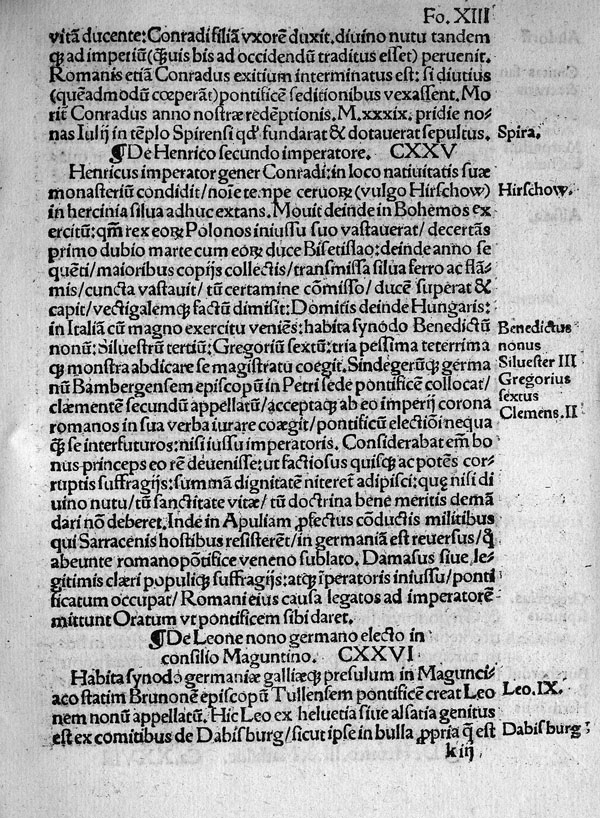 Fo. XIII
vitā ducente: Conradi filiā vxorē duxit. diuino nutu tandem
ꝙ ad imperiū (ꝙuis bis ad occidendū traditus esset) peruenit.
Romanis etiā Conradus exitium interminatus est: si diutius
(quēadmodū cœperāt) pontificē seditionibus vexassent. Mo
rit̄ Conradus anno nostræ redēptionis. M.xxxix. pridie no-
nas Iulij in tēplo Spirensi qd' fundarat & dotauerat sepultus.
Spira.
¶ De Henrico secundo imperatore. CXXV
Henricus imperator gener Conradi: in loco natiuitatis suæ
monasteriū condidit/ noīe tempe ceruoꝝ (vulgo Hirschow)
Hirschow.
in hercinia silua adhuc extans. Mouit deinde in Bohemos ex
ercitū: qm̄ rex eoꝝ Polonos iniussu suo vastauerat/ decertās
primo dubio marte cum eoꝝ duce Bisetislao: deinde anno se
quēti/ maioribus copijs collectis/ transmissa silua ferro ac flā-
mis/ cuncta vastauit/ tū certamine cōmisso/ ducē superat &
capit/ vectigalemꝙ factū dimisit: Domitis deinde Hungaris:
in Italiā cū magno exercitu veniēs: habita synodo Benedictū
Benedictus
nonū: Siluestrū tertiū: Gregoriū sextū: tria pessima teterrima
nonus
ꝙ monstra abdicare se magistratu coegit. Sindegerūꝙ germa
Siluester III
nū Bambergensem episcopū in Petri sede pontificē collocat/
Gregorius
sextus
clæmentē secundū appellatū/ acceptaꝙ ab eo imperij corona
Clemens. II
romanos in sua verba iurare coægit/ pontificū electiōi nequa
ꝙ se interfuturos: nisi iussu imperatoris. Considerabat em̄ bo
nus princeps eo rē deuenisse: ut factiosus quisꝙ ac potēs cor-
ruptis suffragijs: summā dignitatē niteret̄ adipisci: quę nisi di
uino nutu/ tū sanctitate vitæ/ tū doctrina bene meritis demā
dari nō deberet. Inde in Apuliam ꝓfectus cōductis militibus
qui Sarracenis hostibus resisterēt/ in germaniā est reuersus/ ꝗ
abeunte romano pōtifice veneno sublato. Damasus siue le-
gitimis clæri populiꝙ suffragijs: atꝙ īperatoris iniussu/ ponti
ficatum occupat/ Romani eius causa legatos ad imperatorē
mittunt Oratum vt pontificem sibi daret.
¶ De Leone nono germano electo in
consilio Maguntino. CXXVI
Habita synodo germaniæ galliæꝙ presulum in Magunci-
aco statim Brunonē episcopū Tullensem pontificē creat Leo
Leo. IX.
nem nonū appellatū. Hic Leo ex heluetia siue alsatia genitus
est ex comitibus de Dabisburg/ sicut ipse in bulla ꝓpria q̄ est
Dabisburg
k iij